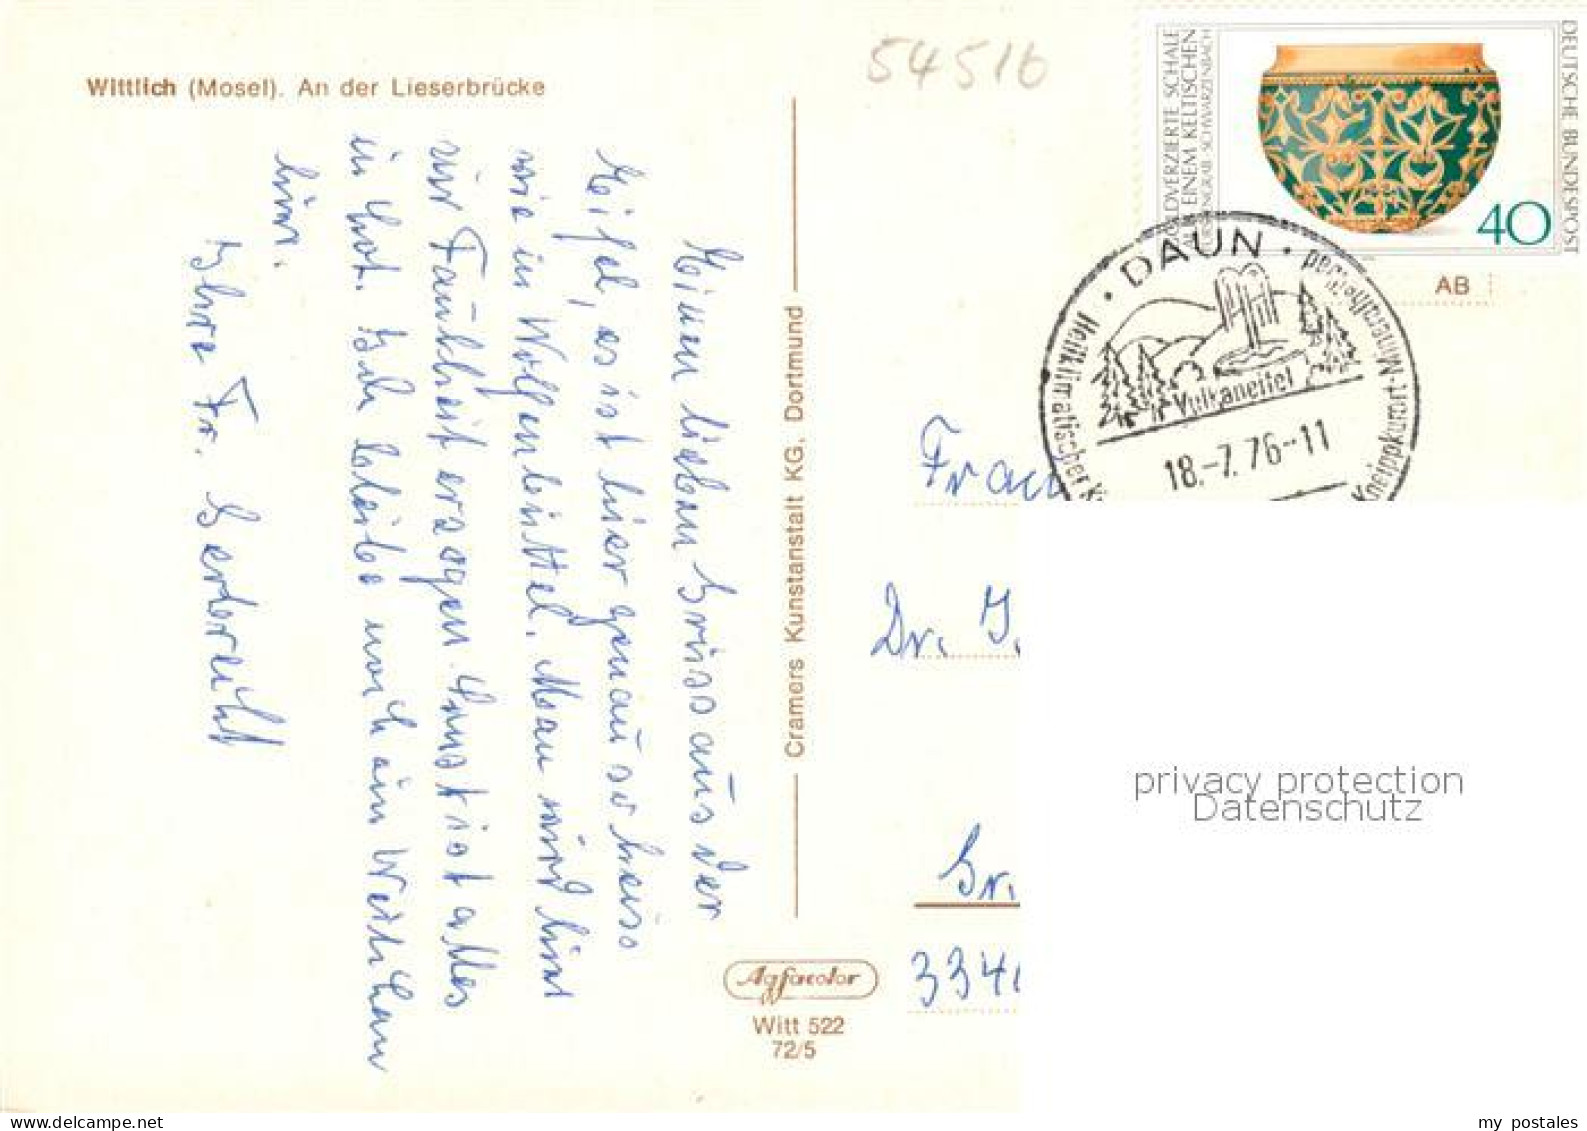 Wittlich (Mosel). An der Lieserbrücke
54516
GOLDVERZIERTE SCHALE
AUS EINEM KELTISCHEN
FÜRSTENGRAB · SCHWARZENBACH
DEUTSCHE BUNDESPOST
40
AB
· DAUN ·
Heilklimatischer K
Kneippkurort-Mineralheilbad
Vulkaneifel
18.-7.76--11
Einen lieben Gruss aus der
Eifel, es ist hier genau so heiss
wie in Wolfenbüttel. Man wird hier
zur Faulheit erzogen. Sonst ist alles
in Lot. Ich bleibe noch ein Weilchen
hier.
Ihre Fr.
Cramers Kunstanstalt KG, Dortmund
Agfacolor
Witt 522
72/5
Frau
Dr. I.
Gr.
334
privacy protection
Datenschutz
my postales